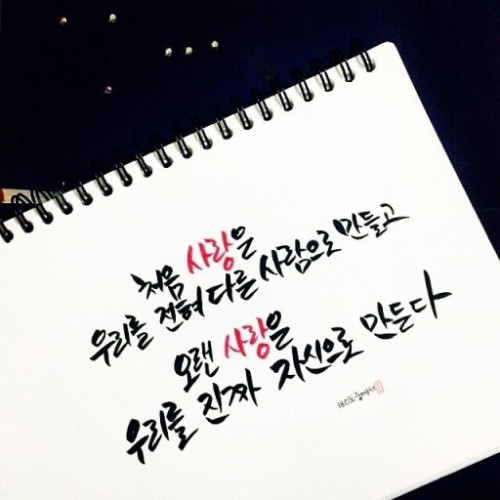 처음 사랑은
우리를 전혀 다른 사람으로 만들고
오랜 사랑은
우리를 진짜 자신으로 만든다